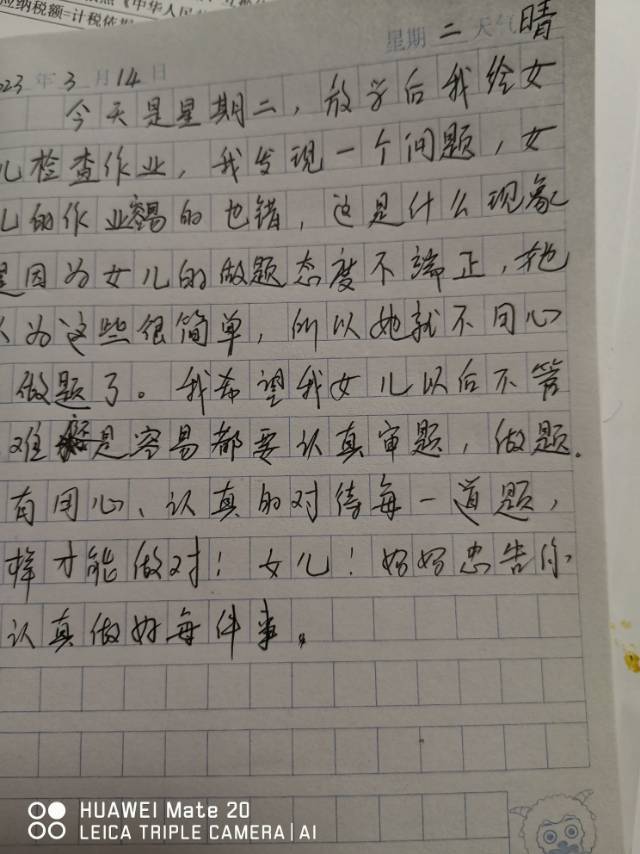 应纳税额=计税依据
《中华人民
星期 二 天气 晴
023 年 3 月 14 日
今天是星期二，放学后我给女
儿检查作业，我发现一个问题，女
儿的作业容易的也错，这是什么现象
是因为女儿的做题态度不端正，她
认为这些很简单，所以她就不用心
做题了。我希望我女儿以后不管
难是容易都要认真审题，做题.
有用心、认真的对待每一道题，
样才能做对！女儿！妈妈忠告你
认真做好每件事。
HUAWEI Mate 20
LEICA TRIPLE CAMERA | AI